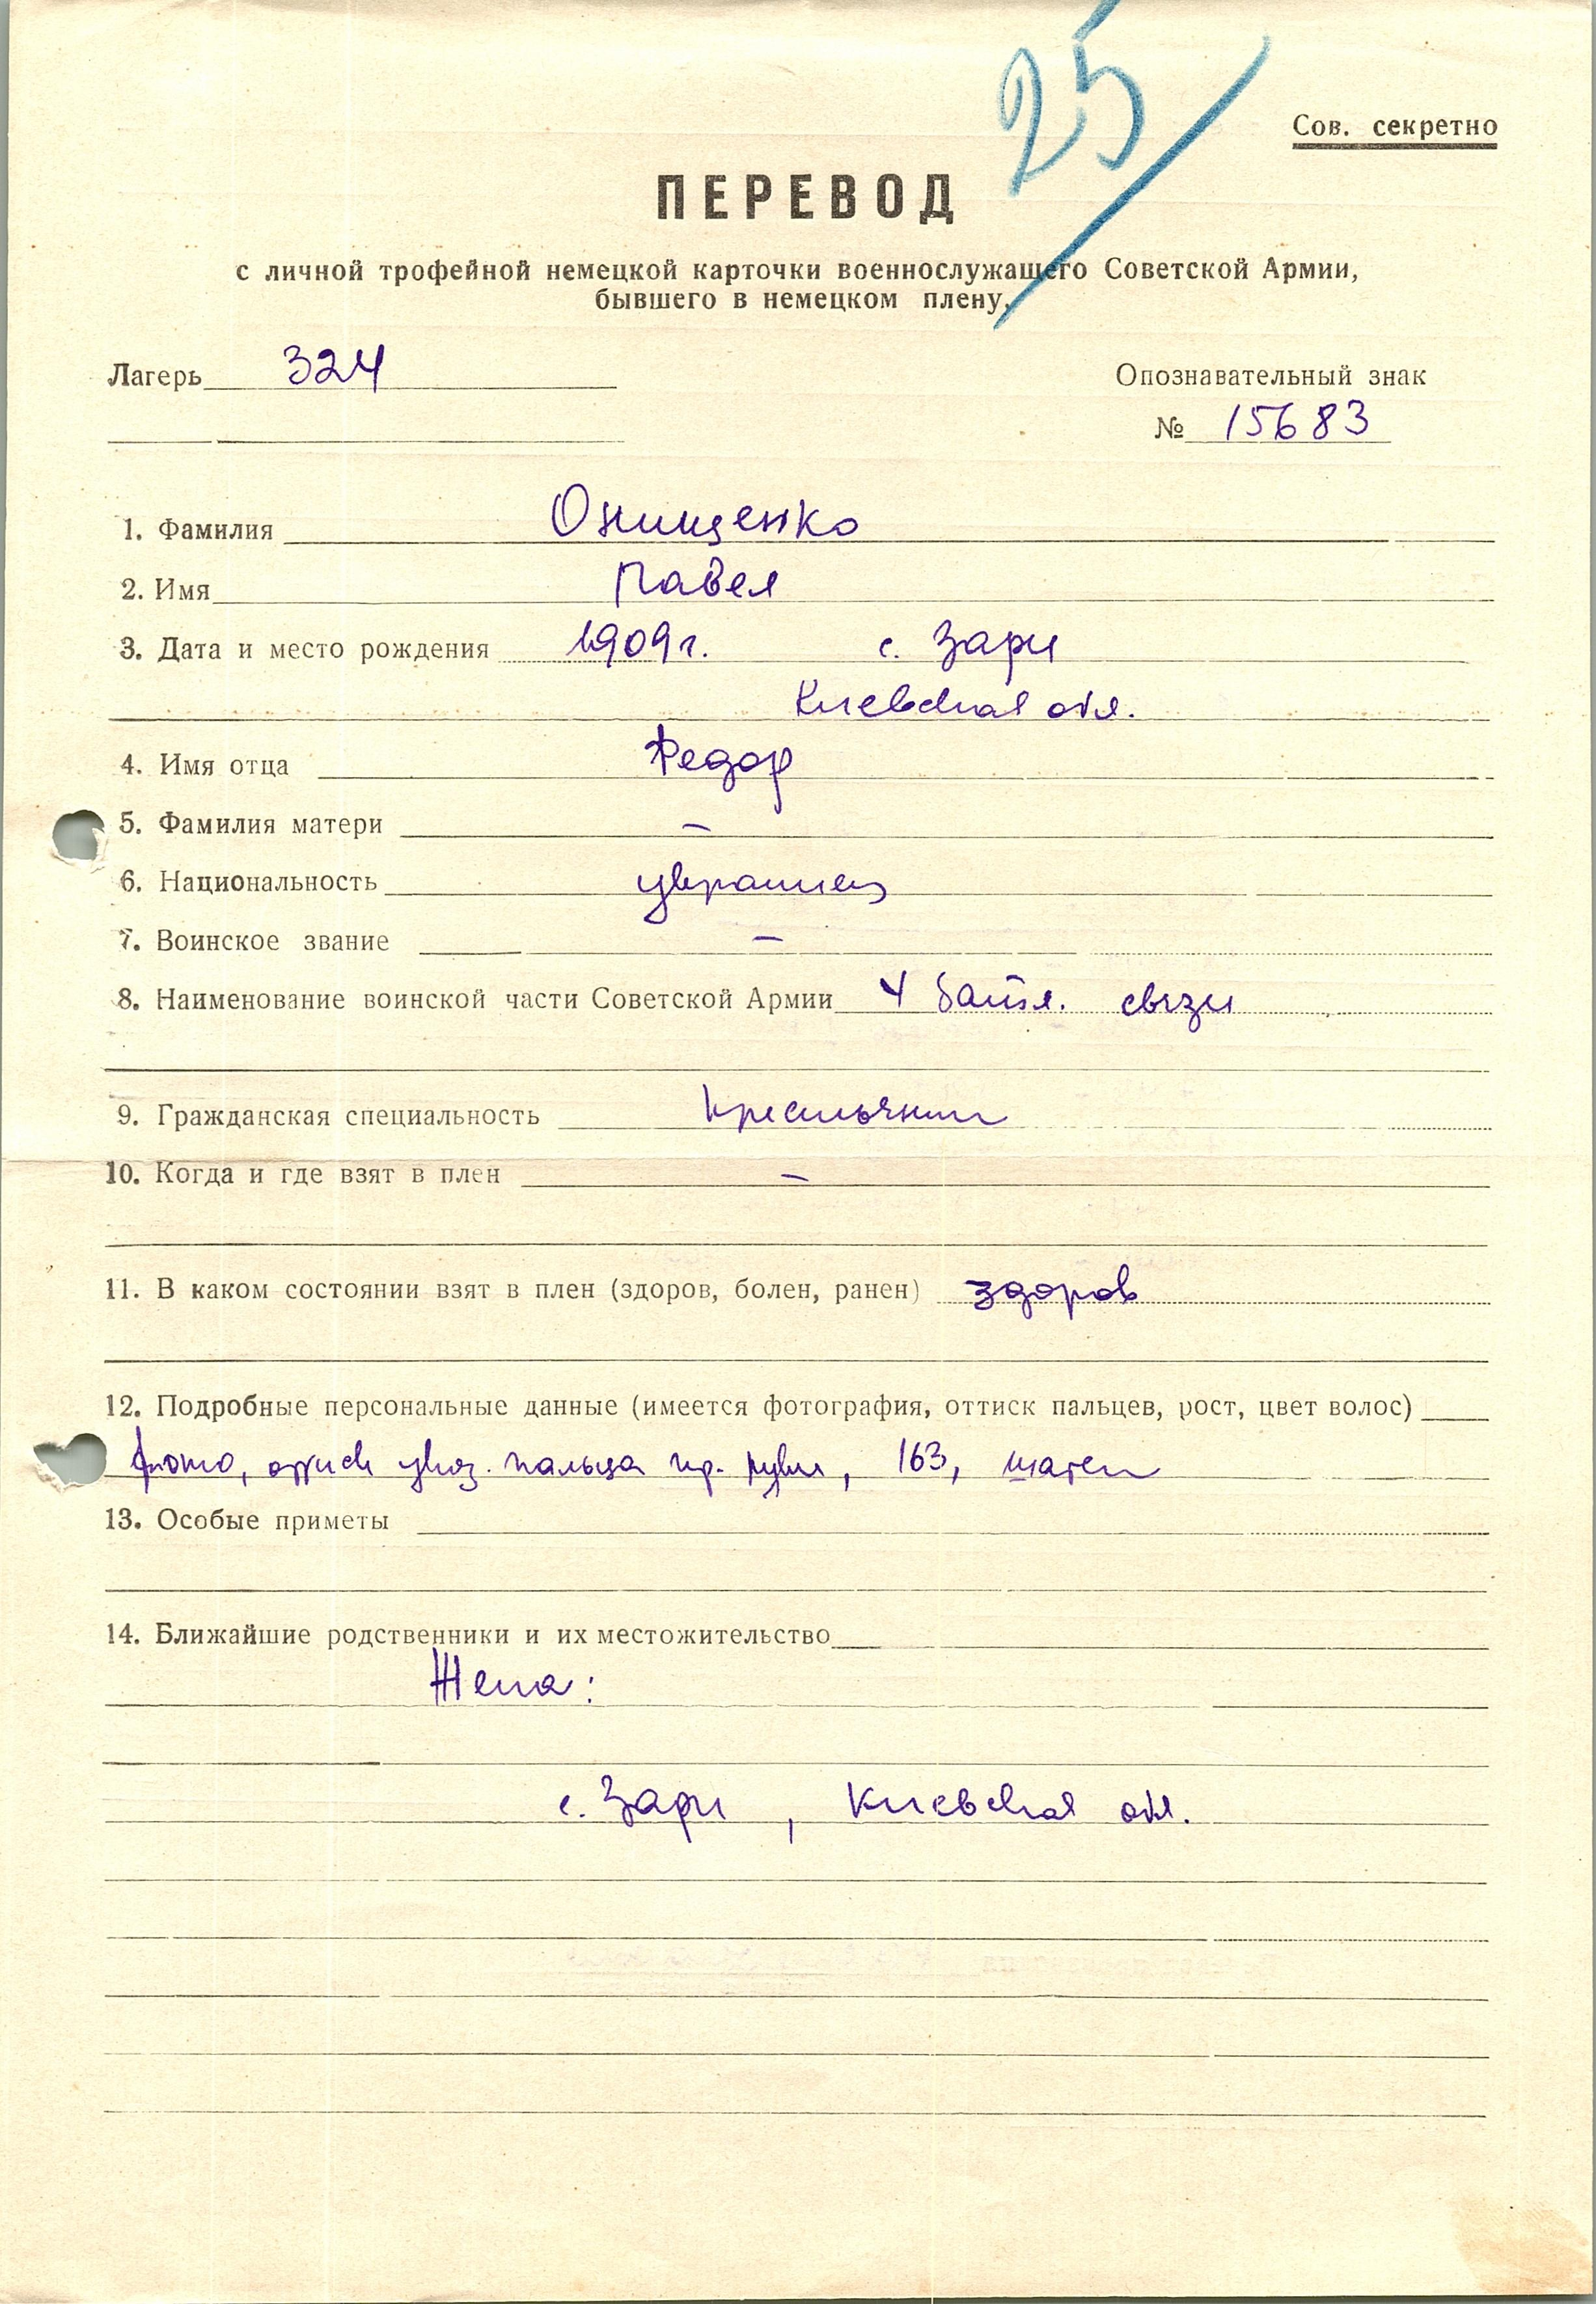 25
Сов. секретно
ПЕРЕВОД
с личной трофейной немецкой карточки военнослужащего Советской Армии,
бывшего в немецком плену,
Лагерь 324
Опознавательный знак
№ 15683
1. Фамилия Онищенко
2. Имя Павел
3. Дата и место рождения 1909 г. с. Зари
Киевская обл.
4. Имя отца Федор
5. Фамилия матери —
6. Национальность украинец
7. Воинское звание —
8. Наименование воинской части Советской Армии 4 батл. связи
9. Гражданская специальность крестьянин
10. Когда и где взят в плен —
11. В каком состоянии взят в плен (здоров, болен, ранен) здоров
12. Подробные персональные данные (имеется фотография, оттиск пальцев, рост, цвет волос)
фото, оттиск указ. пальца пр. руки, 163, шатен
13. Особые приметы
14. Ближайшие родственники и их местожительство
Жена:
с. Зари, Киевская обл.